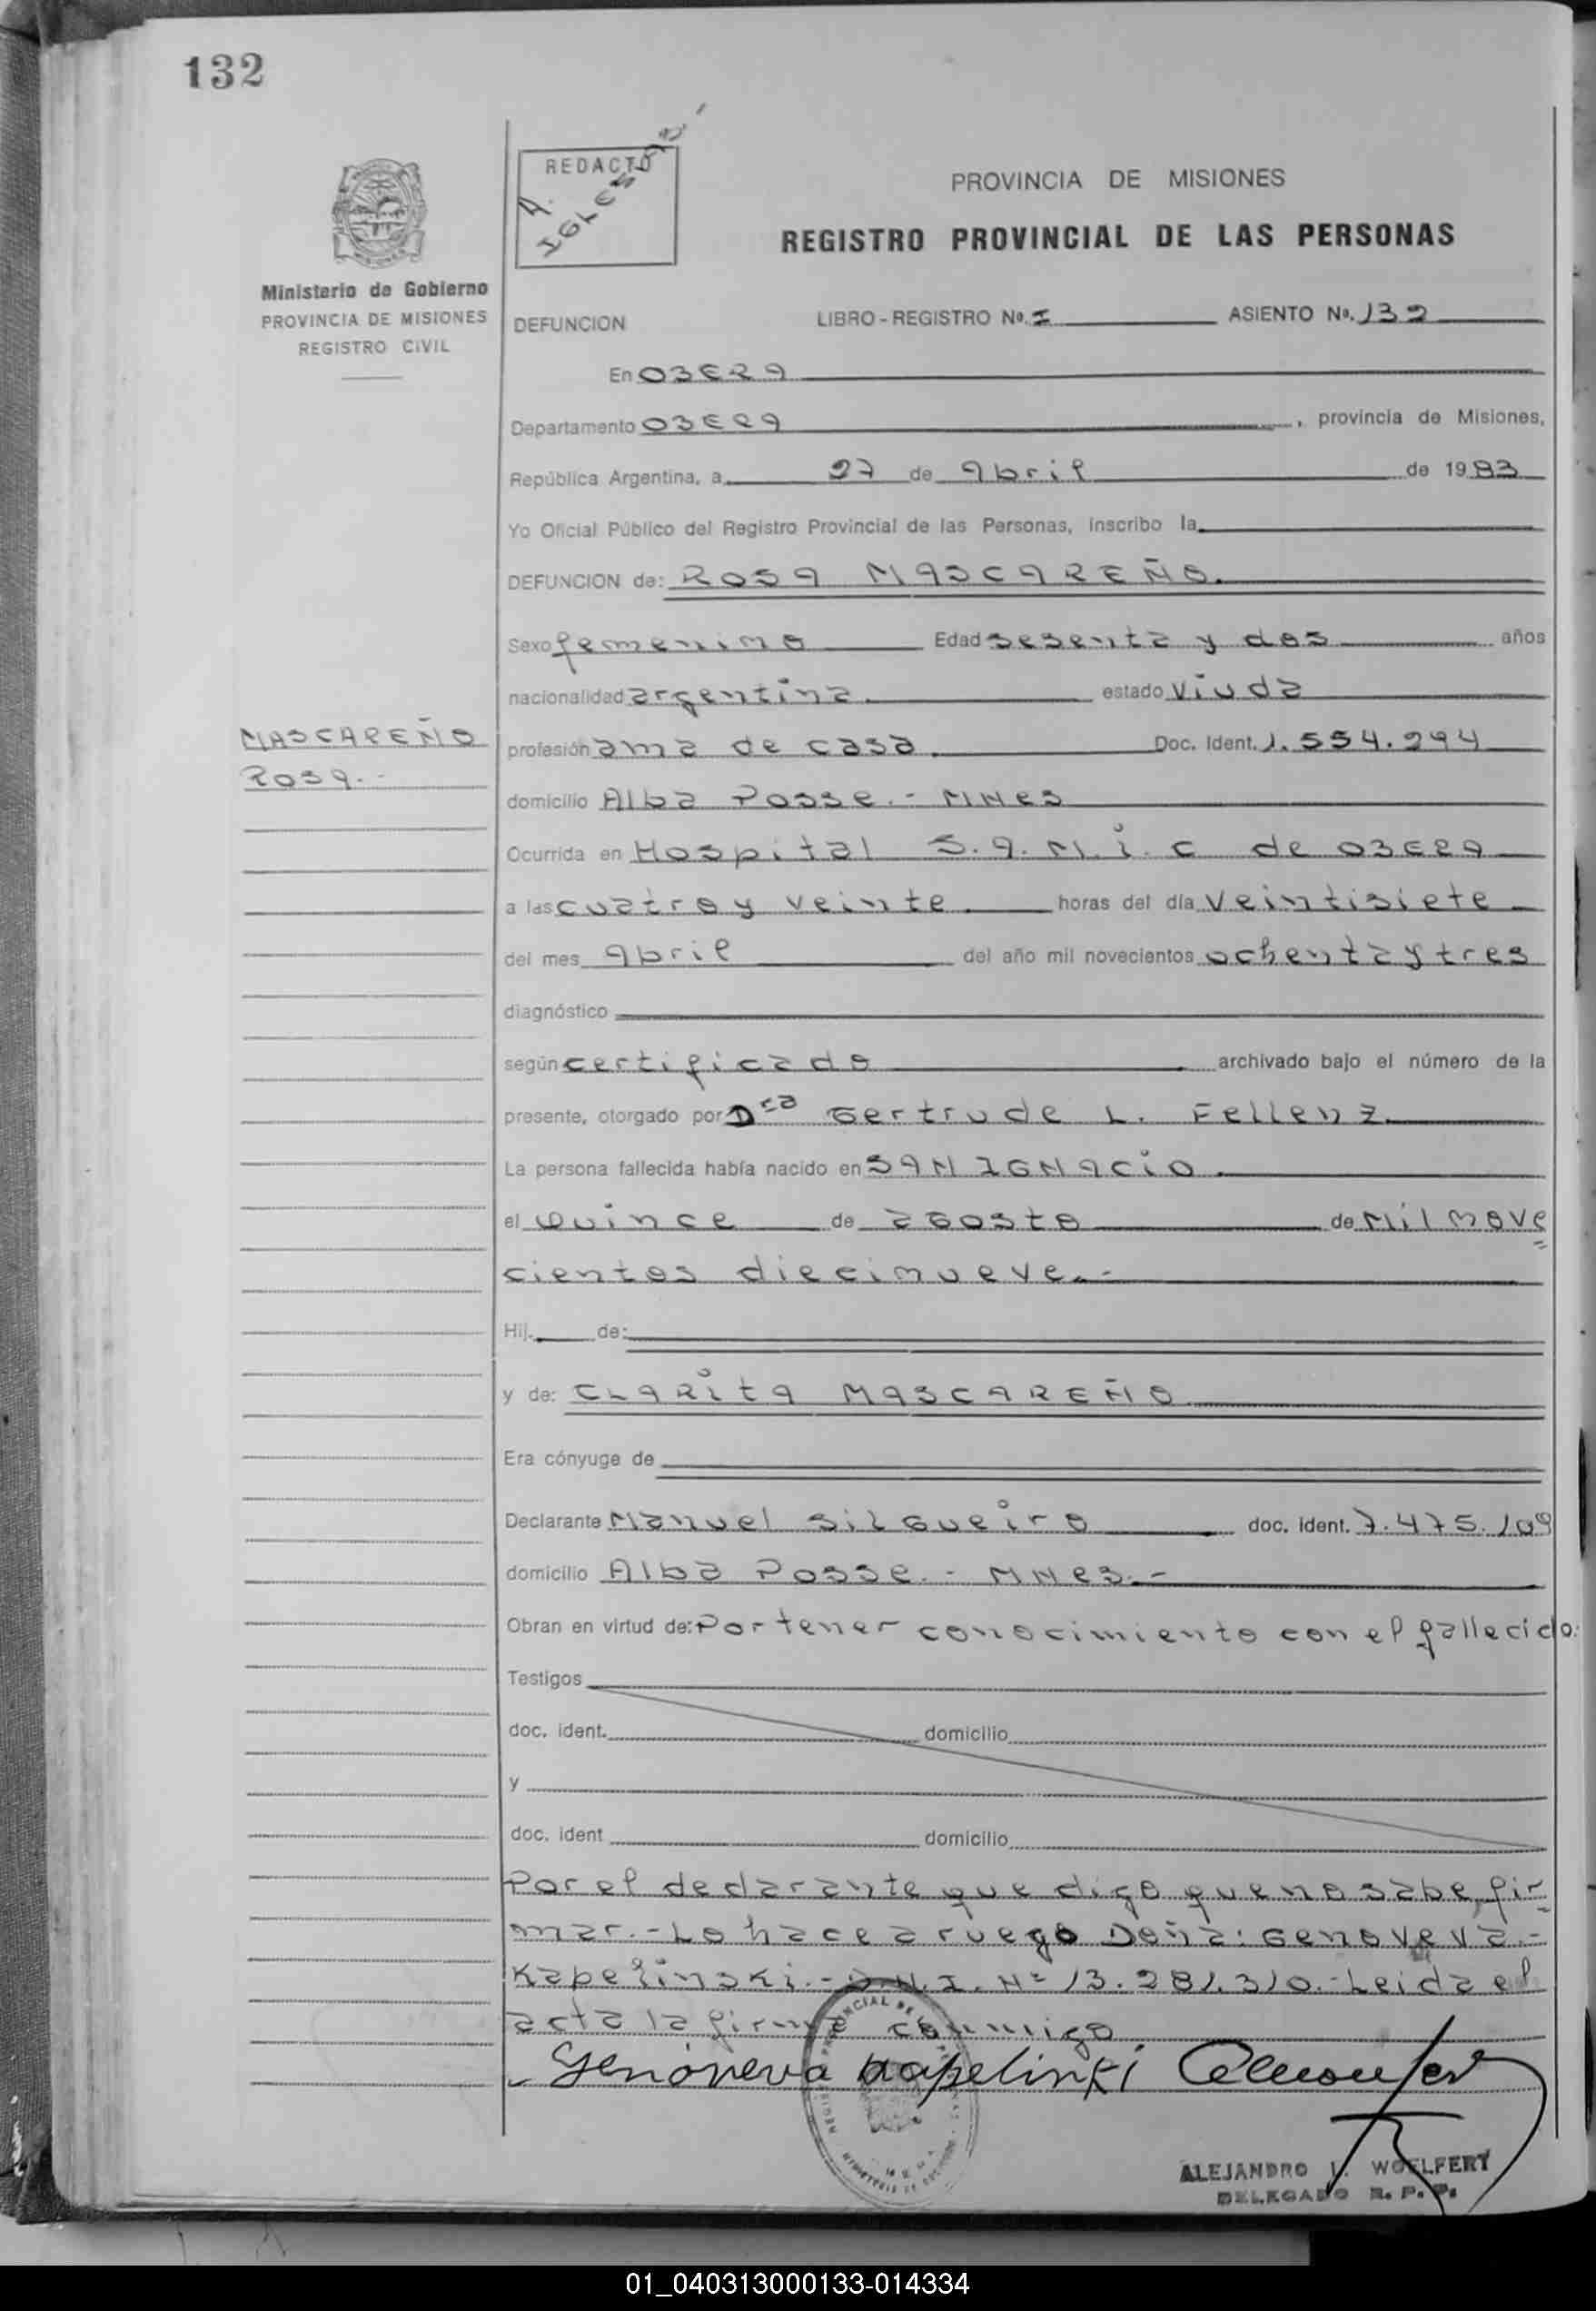 132
REDACTO
A.
IGLESIAS.-
PROVINCIA DE MISIONES
REGISTRO PROVINCIAL DE LAS PERSONAS
Ministerio de Gobierno
PROVINCIA DE MISIONES
REGISTRO CIVIL
DEFUNCION LIBRO - REGISTRO Nº. I ASIENTO Nº. 132
En OBERA
Departamento OBERA, provincia de Misiones,
República Argentina, a 27 de Abril de 1983
Yo Oficial Público del Registro Provincial de las Personas, inscribo la
DEFUNCION de: ROSA MASCAREÑO.
Sexo femenino Edad sesenta y dos años
nacionalidad argentina. estado Viuda
MASCAREÑO
ROSA.-
profesión ama de casa. Doc. Ident. 1.554.294
domicilio Alba Posse.- MNes
Ocurrida en Hospital S.A.M.i.c de OBERA
a las cuatro y veinte. horas del día veintisiete
del mes Abril del año mil novecientos ochenta y tres
diagnóstico
según certificado archivado bajo el número de la
presente, otorgado por Dra Gertrude L. Fellenz.
La persona fallecida había nacido en SAN IGNACIO.
el Quince de agosto de Mil nove
cientos diecinueve.-
Hij. de:
y de: CLARITA MASCAREÑO
Era cónyuge de
Declarante Manuel Silgueiro doc. ident. 7.475.109
domicilio Alba Posse.- MNes.-
Obran en virtud de: Por tener conocimiento con el fallecido.
Testigos
doc. ident. domicilio
y
doc. ident domicilio
Por el declarante que digo que no sabe fir
mar.- Lo hace a ruego Doña: Genoveva.-
Kapelinski.- D.N.I. Nº 13.281.310.- Leida el
acta la firma conmigo
Genoveva Kapelinski
ALEJANDRO L. WOELFERT
DELEGADO R. P. P.
01_040313000133-014334